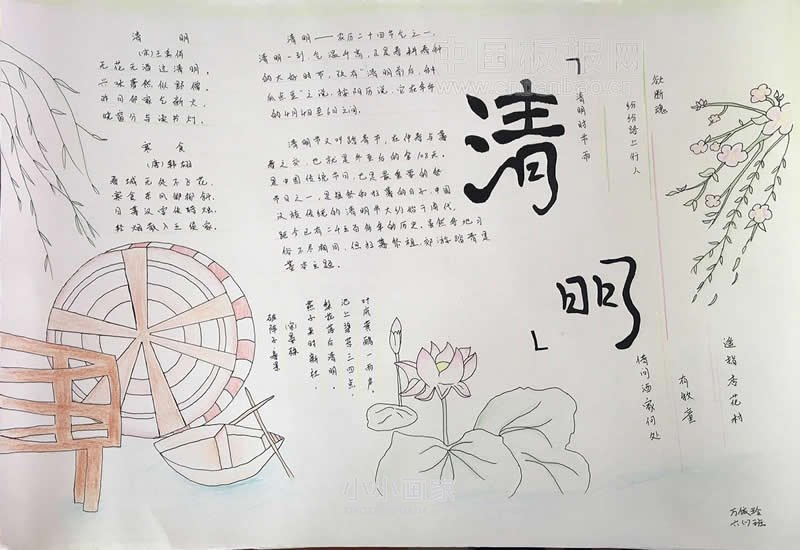 清 明
(宋)王禹偁
无花无酒过清明,
兴味萧然似野僧。
昨日邻家乞新火,
晓窗分与读书灯。
寒食
(唐)韩翃
春城无处不飞花,
寒食东风御柳斜。
日暮汉宫传蜡烛,
轻烟散入五侯家。
清明——农历二十四节气之一,
清明一到,气温升高,正是春耕春种
的大好时节,故有“清明前后,种
瓜点豆”之说。按阳历说,它在每年
的4月4日至6日之间。
清明节又叫踏青节,在仲春与暮
春之交,也就是冬至后的第108天。
是中国传统节日,也是最重要的祭
节日之一,是祭祖和扫墓的日子。中国
汉族传统的清明节大约始于周代,
距今已有二千五百多年的历史。虽然各地习
俗不尽相同,但扫墓祭祖、郊游踏青是
基本主题。
「清明」
清明时节雨
纷纷路上行人
欲断魂
借问酒家何处
有牧童
遥指杏花村
破阵子 春景
(宋)晏殊
燕子来时新社,
梨花落后清明。
池上碧苔三四点,
叶底黄鹂一两声。
中国板报网
小小画家
六(7)班